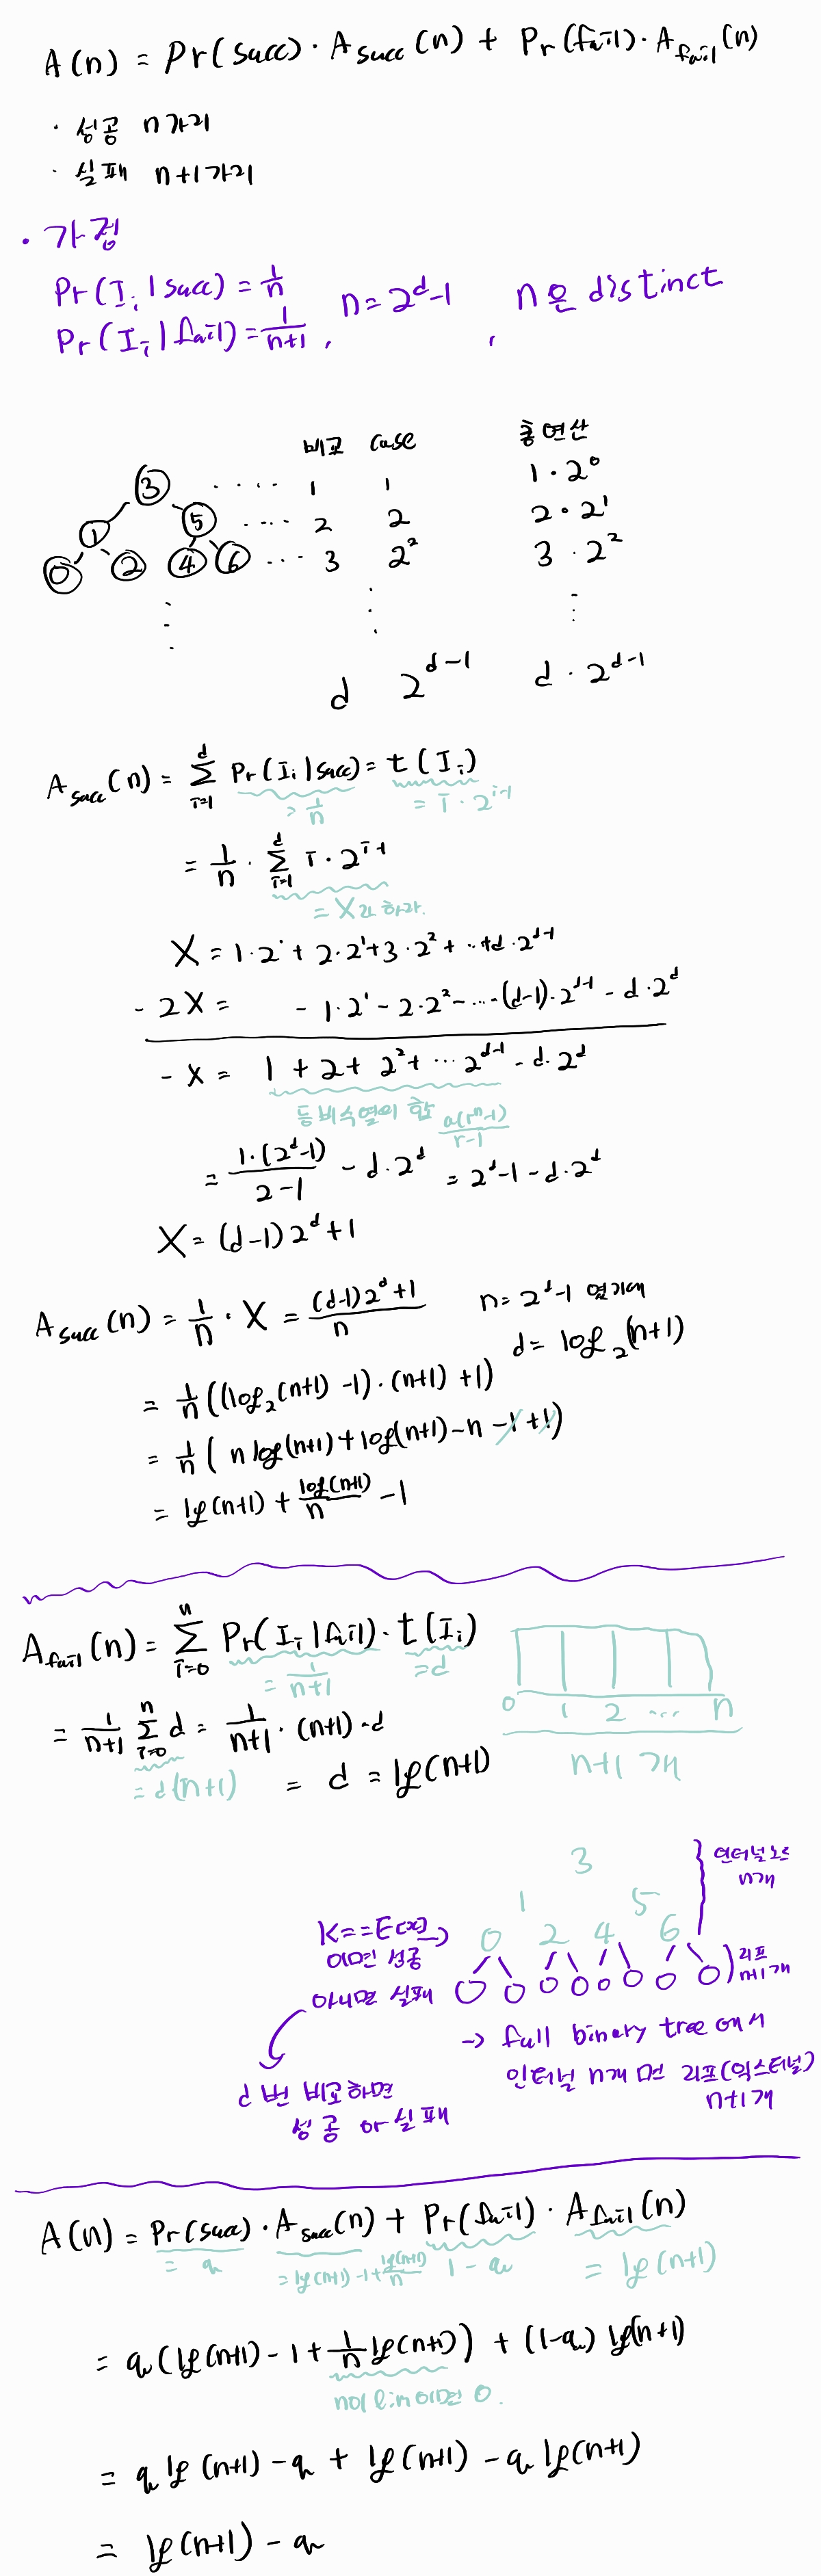 A(n) = Pr(succ) · A_succ(n) + Pr(fail) · A_fail(n)
· 성공 n가지
· 실패 n+1가지
· 가정
Pr(I_i | succ) = 1/n
Pr(I_i | fail) = 1/(n+1) , n = 2^d - 1 , n은 distinct
비교 case 총연산
3 ···· 1 1 1 · 2^0
1 5 ···· 2 2 2 · 2^1
0 2 4 6 ··· 3 2^2 3 · 2^2
⋮ ⋮ ⋮
d 2^(d-1) d · 2^(d-1)
A_succ(n) = Σ_{i=1}^{d} Pr(I_i | succ) = t(I_i)
= 1/n = i · 2^(i-1)
= 1/n · Σ_{i=1}^{d} i · 2^(i-1)
= X라 하자.
X = 1·2^· + 2·2^1 + 3·2^2 + ··+d·2^(d-1)
- 2X = - 1·2^1 - 2·2^2 - ···-(d-1)·2^(d-1) - d·2^d
- X = 1 + 2 + 2^2 + ··· 2^(d-1) - d·2^d
등비수열의 합 a(r^n-1)/(r-1)
= 1·(2^d-1)/(2-1) - d·2^d = 2^d - 1 - d·2^d
X = (d-1)2^d + 1
A_succ(n) = 1/n · X = ((d-1)2^d + 1)/n n = 2^d - 1 였기에
d = log_2(n+1)
= 1/n((log_2(n+1) - 1)·(n+1) + 1)
= 1/n( n log(n+1) + log(n+1) - n - 1 + 1)
= lg(n+1) + log(n+1)/n - 1
A_fail(n) = Σ_{i=0}^{n} Pr(I_i | fail) · t(I_i)
= 1/(n+1) = d
0 1 2 ··· n
= 1/(n+1) Σ_{i=0}^{n} d = 1/(n+1) · (n+1) · d
n+1 개
= d(n+1) = d = lg(n+1)
3
인터널노드
n개
1 5
K==E[x]
0 2 4 6
이면 성공
리프
n+1개
아니면 실패
→ full binary tree에서
인터널 n개 면 리프(익스터널)
n+1개
d번 비교하면
성공 or 실패
A(n) = Pr(succ) · A_succ(n) + Pr(fail) · A_fail(n)
= q = lg(n+1) - 1 + lg(n+1)/n 1 - q = lg(n+1)
= q(lg(n+1) - 1 + 1/n lg(n+1)) + (1-q) lg(n+1)
lim 이면 0.
= q lg(n+1) - q + lg(n+1) - q lg(n+1)
= lg(n+1) - q